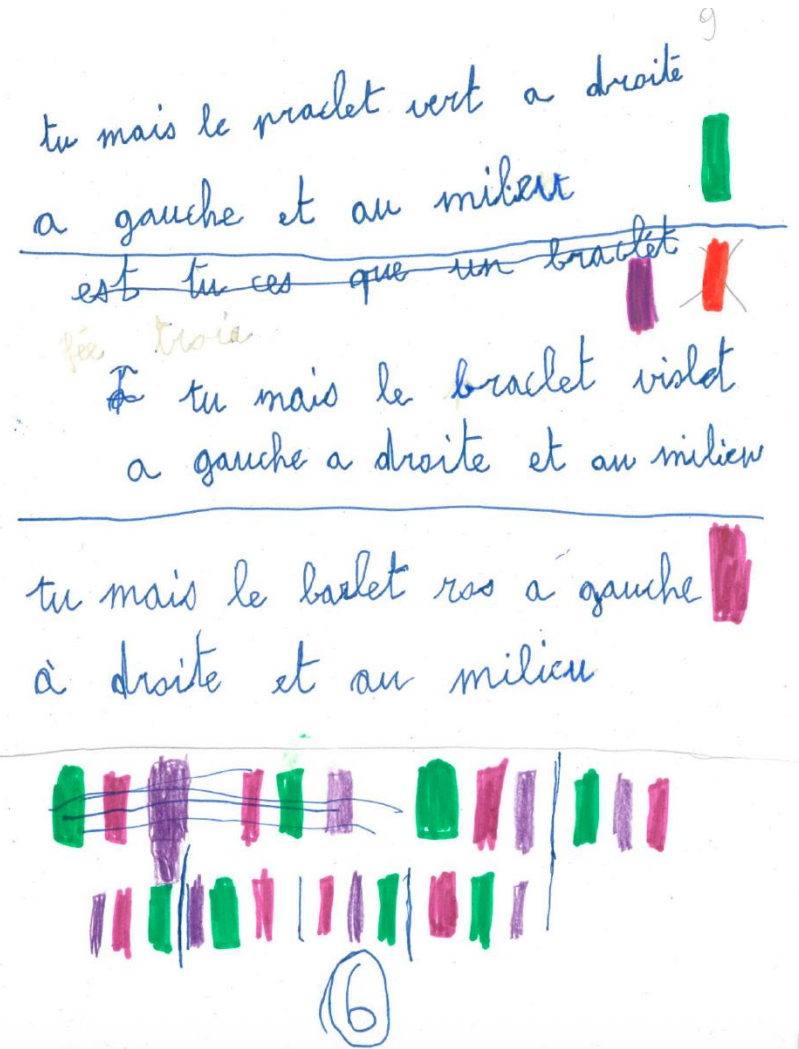 9
tu mais le praclet vert a droite
a gauche et au milieu
est tu ces que un braclet
fée trois
tu mais le braclet violet
a gauche a droite et au milieu
tu mais le barlet ros a gauche
à droite et au milieu
6